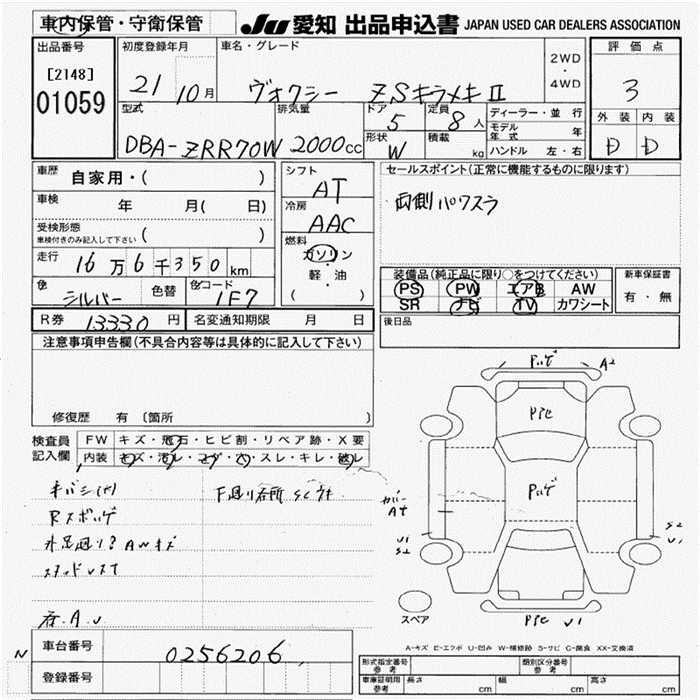 車内保管・守衛保管
JU 愛知 出品申込書 JAPAN USED CAR DEALERS ASSOCIATION
出品番号 初度登録年月 車名・グレード 2WD・4WD 評価点
[2148] 01059 21 10月 ヴォクシー ZSキラメキⅡ 3
型式 排気量 ドア 5 定員 8人 ディーラー・並行 外装 内装
DBA-ZRR70W 2000cc 形状 W 積載 kg モデル年式 年 D D
ハンドル 左・右
車歴 自家用・( ) シフト AT セールスポイント(正常に機能するものに限ります)
車検 年 月( 日) 冷房 AAC 両側パワスラ
受検形態 車検付きのみ記入して下さい ( )
燃料 ガソリン・軽・油 ( )
走行 16万6千350km
装備品(純正品に限り○をつけてください) 新車保証書
色 シルバー 色替 色コード 1F7 PS PW エアB AW 有・無
SR ナビ TV カワシート
R券 13330円 名変通知期限 月 日 後日品
注意事項申告欄(不具合内容等は具体的に記入して下さい)
修復歴 有 〔箇所 〕
検査員記入欄 FW キズ・飛石・ヒビ割・リペア跡・X要
内装 キズ・汚レ・コゲ・穴・スレ・キレ・破レ
下廻り各所
A2
Pﾊｹﾞ
カバーAT
U1
S2
U1
スペア
A-キズ E-エクボ U-凹み W-補修跡 S-サビ C-腐食 XX-交換済
N 車台番号 0256206
登録番号
形式指定番号 参考 類別区分番号 参考
車庫証明用 参考 長さ cm 幅 cm 高さ cm